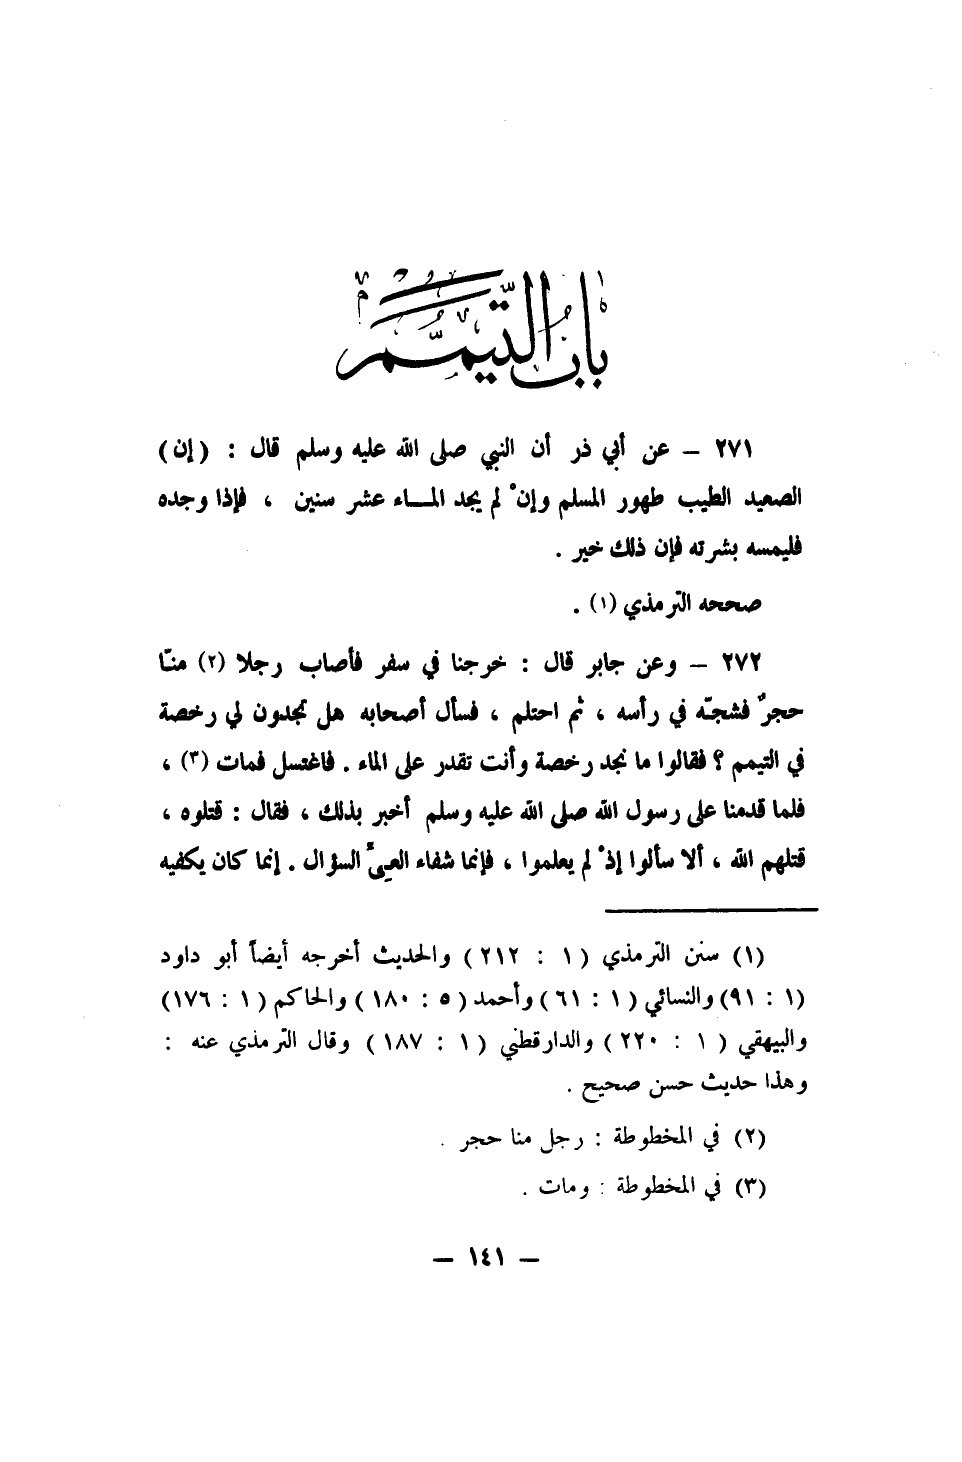 باب التيمم
٢٧١ – عن أبي ذر أن النبي صلى الله عليه وسلم قال : ( إن )
الصعيد الطيب طهور المسلم وإنْ لم يجد المـاء عشر سنين ، فإذا وجده
فليمسه بشرته فإن ذلك خير .
صححه الترمذي (١) .
٢٧٢ – وعن جابر قال : خرجنا في سفر فأصاب رجلا (٢) منّا
حجرٌ فشجّه في رأسه ، ثم احتلم ، فسأل أصحابه هل تجدون لي رخصة
في التيمم ؟ فقالوا ما نجد رخصة وأنت تقدر على الماء . فاغتسل فمات (٣) ،
فلما قدمنا على رسول الله صلى الله عليه وسلم أخبر بذلك ، فقال : قتلوه ،
قتلهم الله ، ألا سألوا إذْ لم يعلموا ، فإنما شفاء العيِّ السؤال . إنما كان يكفيه
(١) سنن الترمذي ( ١ : ٢١٢ ) والحديث أخرجه أيضاً أبو داود
(١ : ٩١) والنسائي ( ١ : ٦١ ) وأحمد ( ٥ : ١٨٠ ) والحاكم ( ١ : ١٧٦ )
والبيهقي ( ١ : ٢٢٠ ) والدارقطني ( ١ : ١٨٧ ) وقال الترمذي عنه :
وهذا حديث حسن صحيح .
(٢) في المخطوطة : رجل منا حجر .
(٣) في المخطوطة : ومات .
– ١٤١ –